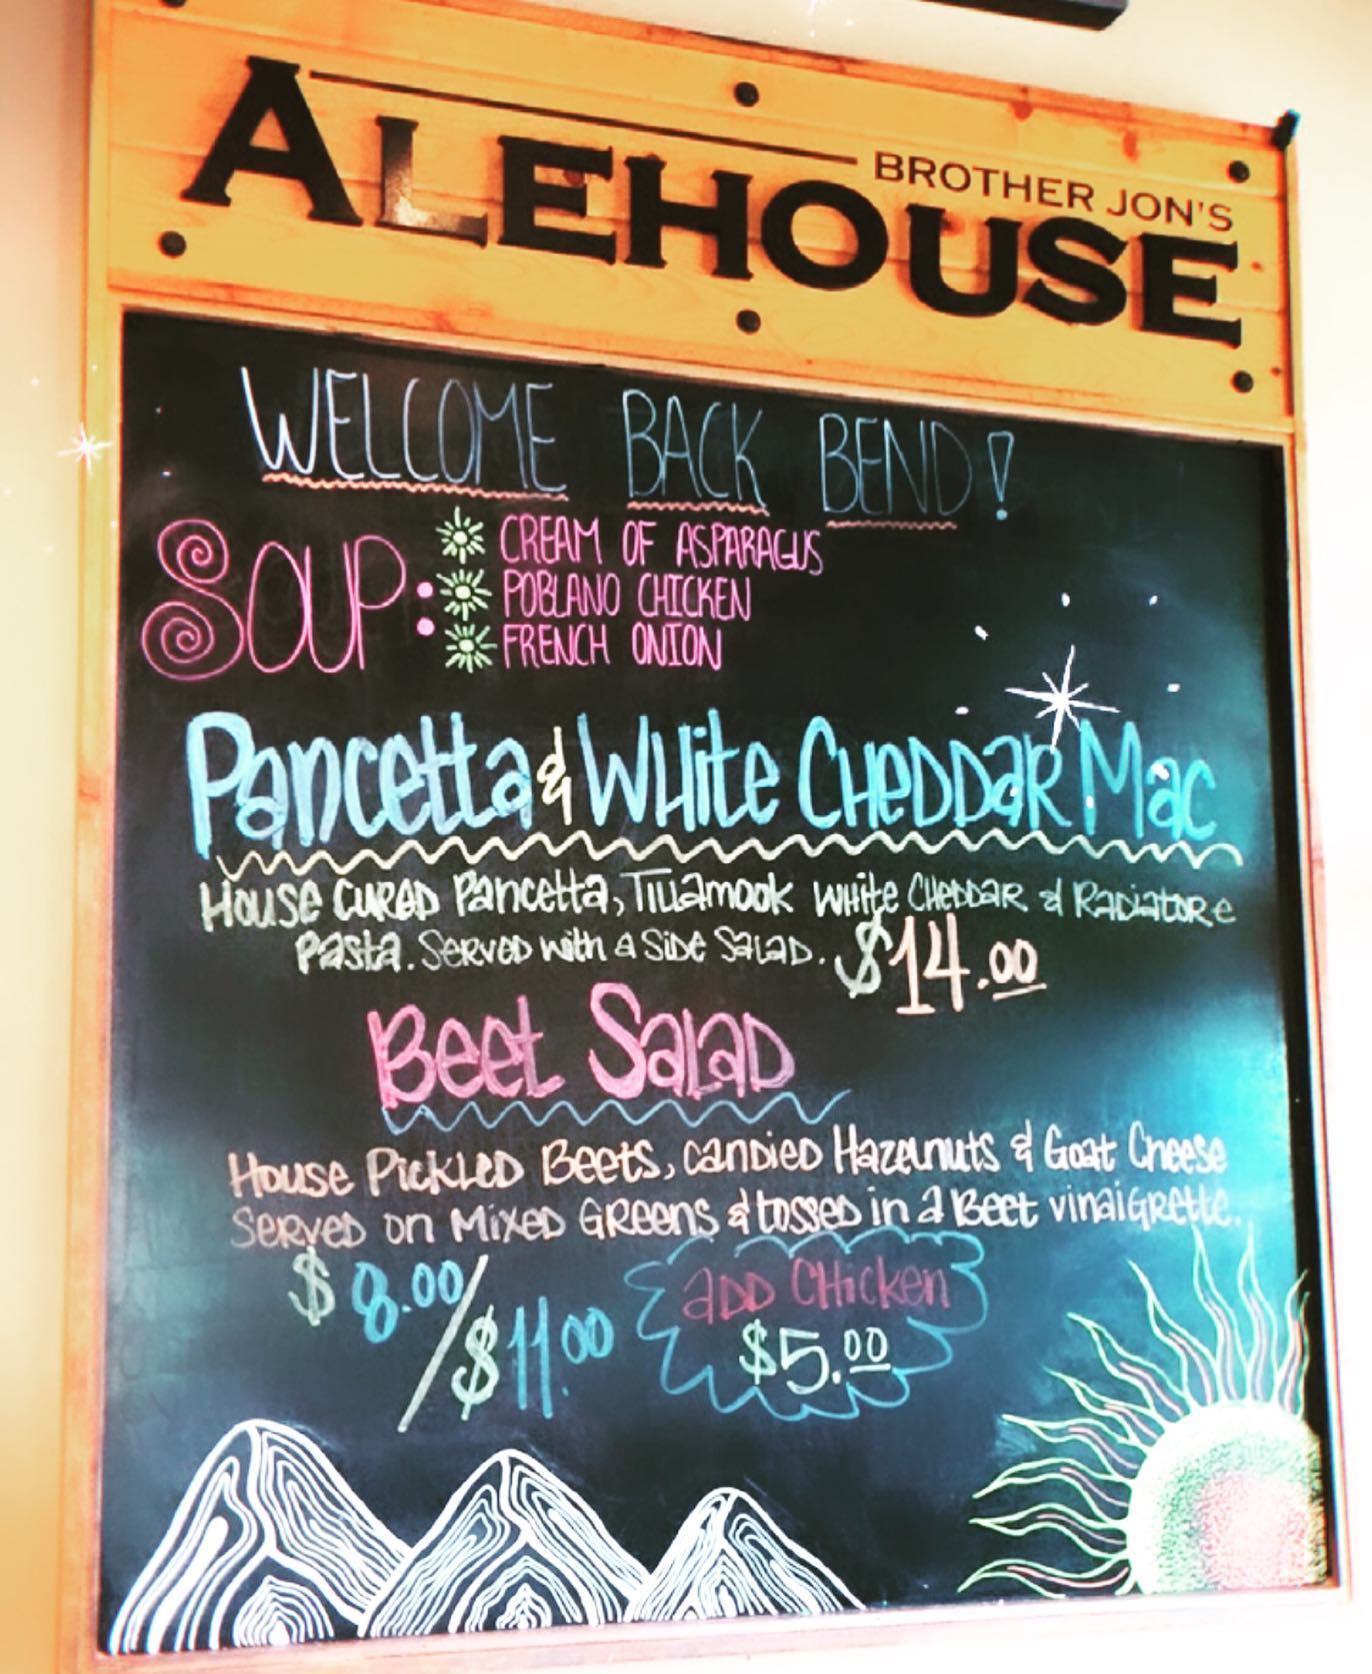 BROTHER JON'S
ALEHOUSE
WELCOME BACK BEND!
SOUP:
CREAM OF ASPARAGUS
POBLANO CHICKEN
FRENCH ONION
Pancetta & WHite CHeDDaR Mac
House CUReD Pancetta, Tillamook WHite CHeDDaR & RaDiatoRe
Pasta. SeRveD with a SiDe SaLaD. $14.00
Beet SaLaD
House PickLeD Beets, canDieD Hazelnuts & Goat Cheese
SeRveD on MixeD GReens & tosseD in a Beet vinaiGRette.
$8.00/$11.00
aDD CHicken
$5.00